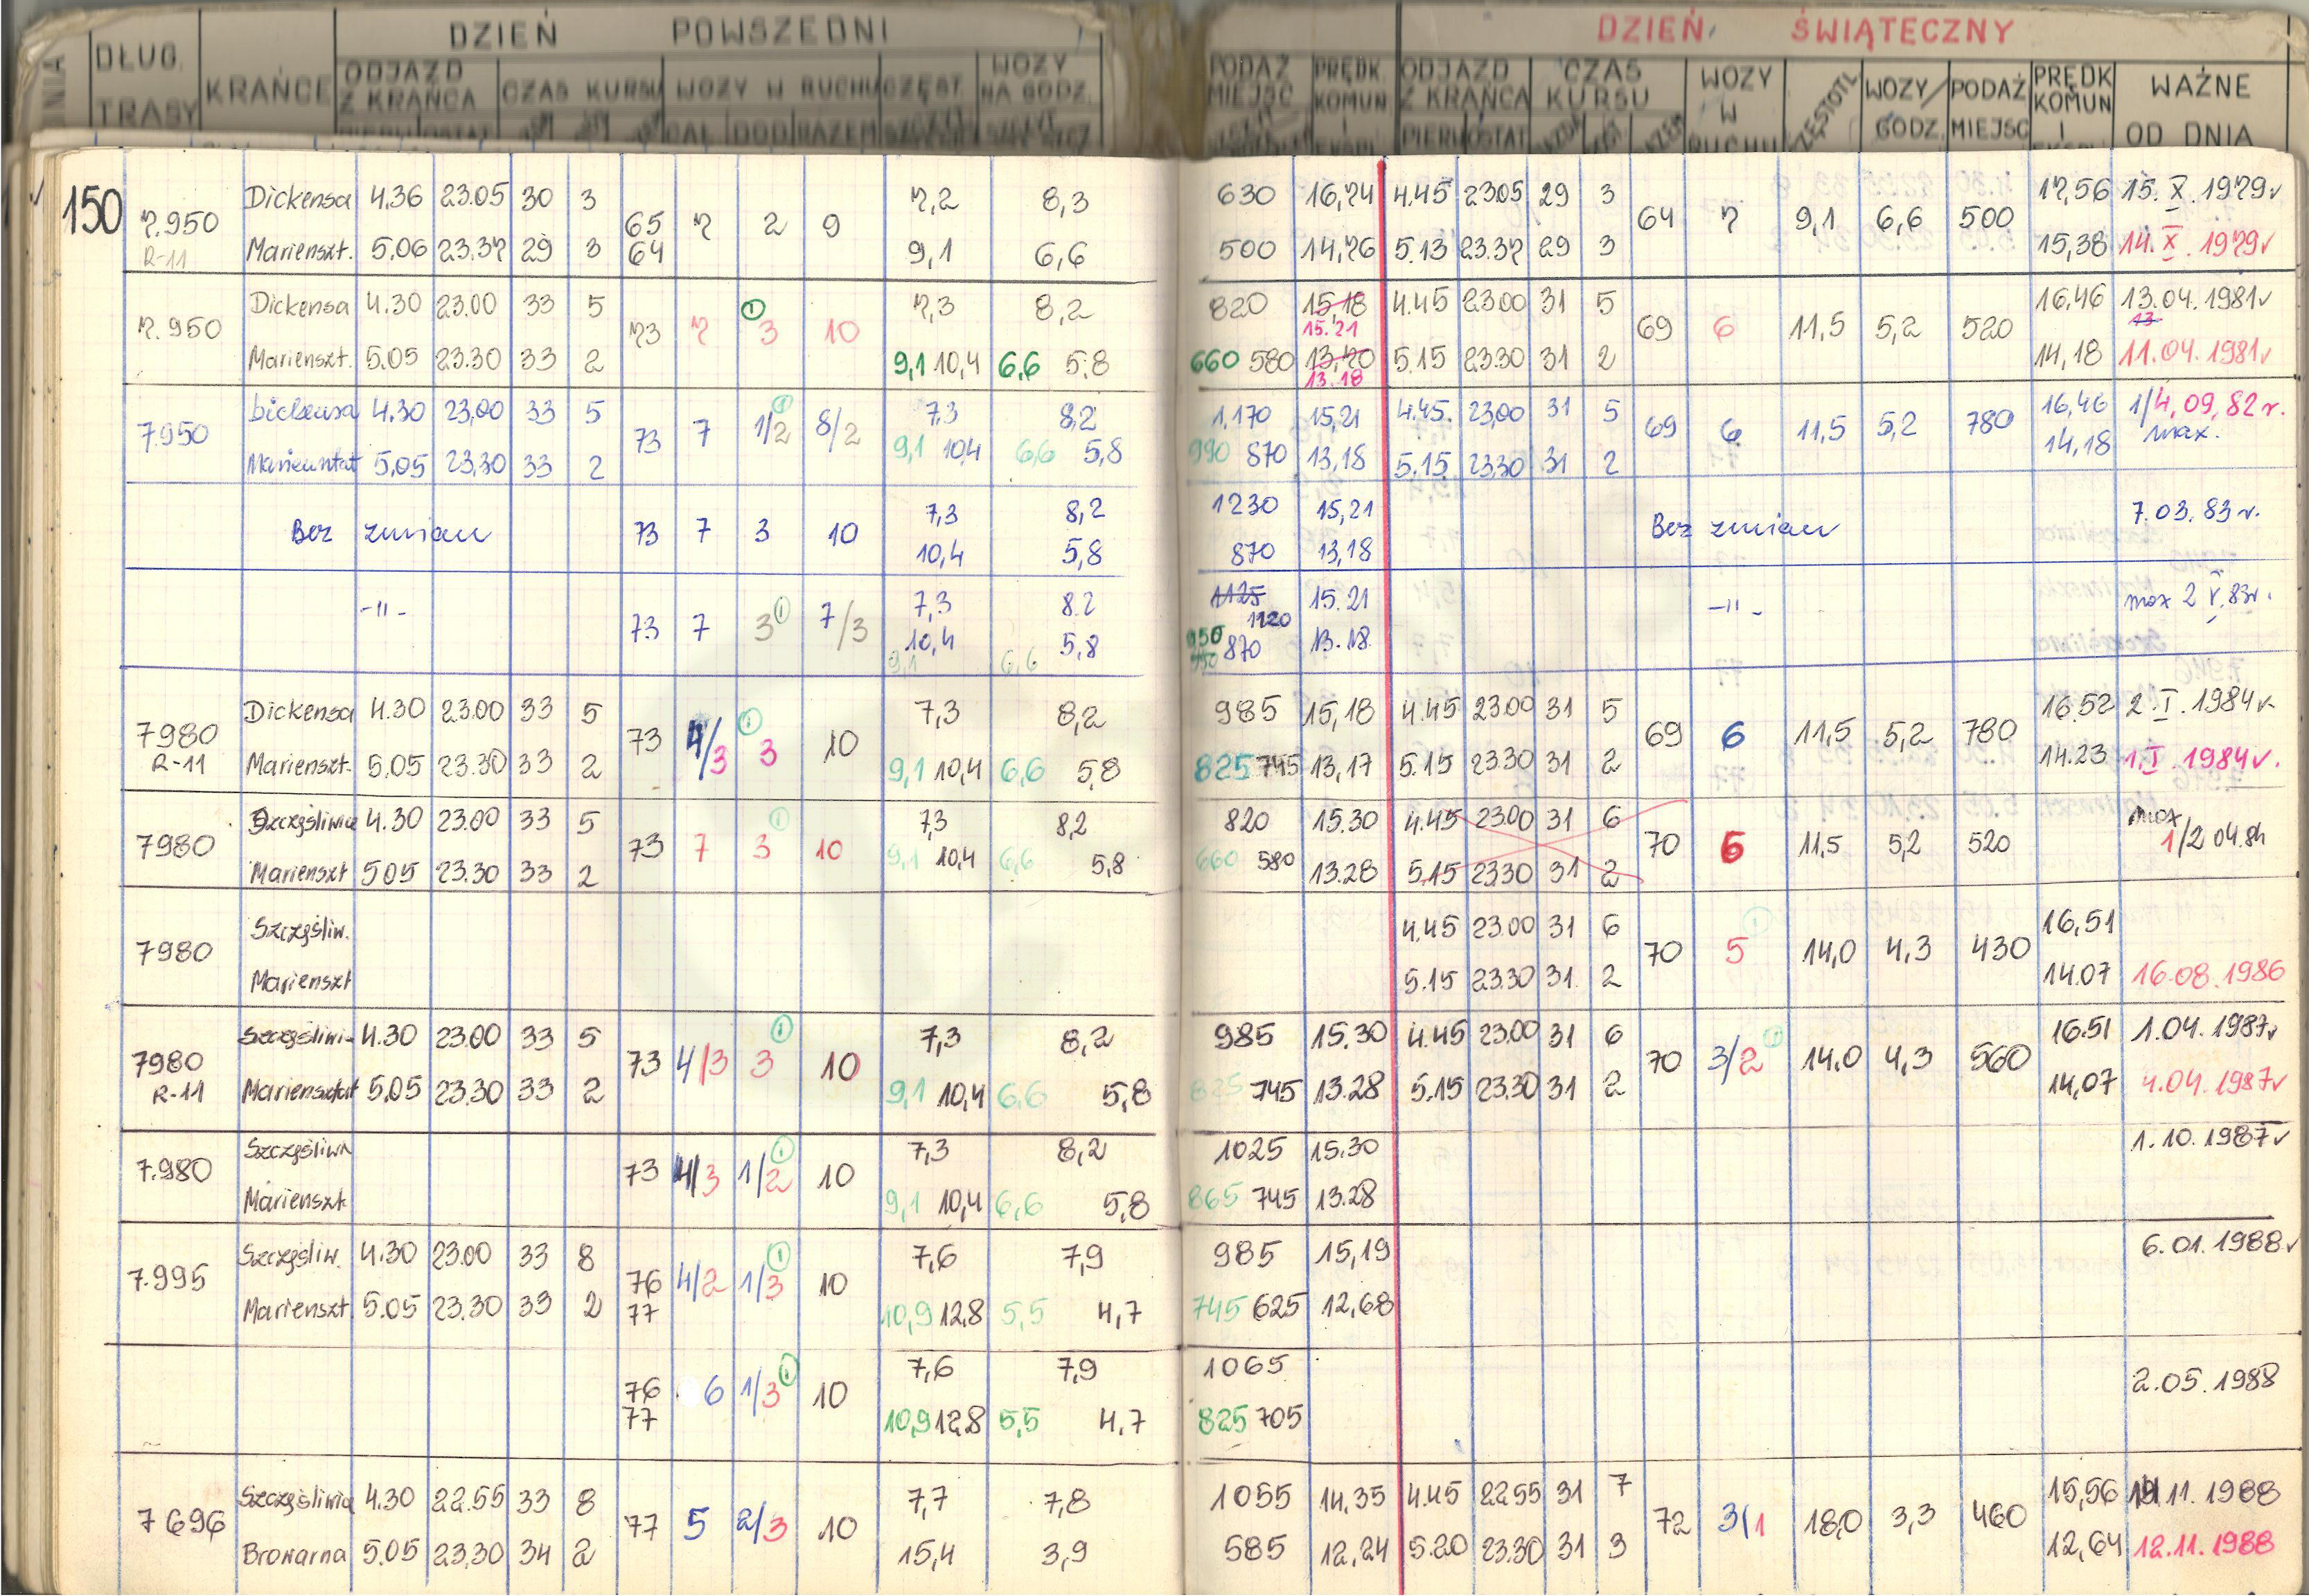 DZIEŃ POWSZEDNI DZIEŃ ŚWIĄTECZNY
DŁUG. TRASY KRAŃCE ODJAZD Z KRAŃCA CZAS KURSU WOZY W RUCHU CZĘST. WOZY NA GODZ. PODAŻ MIEJSC PRĘDK KOMUN I ODJAZD Z KRAŃCA CZAS KURSU WOZY W RUCHU WOZY/GODZ. PODAŻ MIEJSC PRĘDK KOMUN I WAŻNE OD DNIA
150
7.950 R-11
Dickensa 4.36 23.05 30 3 7,2 8,3 630 16,74 4.45 23.05 29 3 17,56 15.X.1979r
65 64 7 2 9 64 7 9,1 6,6 500
Marienszt. 5.06 23.37 29 3 9,1 6,6 500 14,76 5.13 23.37 29 3 15,38 14.X.1979r
7.950
Dickensa 4.30 23.00 33 5 7,3 8,2 820 15,18 15.21 4.45 23.00 31 5 16,46 13.04.1981r
73 7 3 ① 10 69 6 11,5 5,2 520 13
Marienszt. 5.05 23.30 33 2 9,1 10,4 6,6 5,8 660 580 13,70 13.18 5.15 23.30 31 2 14,18 11.04.1981r
7.950
Dickensa 4.30 23,00 33 5 7,3 8,2 1.170 15,21 4.45. 23,00 31 5 16,46 1/4,09,82r.
73 7 1/2 ① 8/2 69 6 11,5 5,2 780 max.
Marienstat 5,05 23,30 33 2 9,1 10,4 6,6 5,8 990 870 13,18 5.15. 23,30 31 2 14,18
Bez zmian 73 7 3 10 7,3 8,2 1230 15,21 Bez zmian 7.03.83r.
10,4 5,8 870 13,18
-"- 73 7 3 ① 7/3 7,3 8.2 1125 1120 15.21 -"- max 2 V.83r.
10,4 9,1 6,6 5,8 950 870 13.18
7980 R-11
Dickensa 4.30 23.00 33 5 7,3 8,2 985 15,18 4.45 23.00 31 5 16.52 2.I.1984r
73 4/3 3 ① 10 69 6 11,5 5,2 780
Marienszt. 5.05 23.30 33 2 9,1 10,4 6,6 5,8 825 745 13,17 5.15 23.30 31 2 14.23 1.I.1984r.
7980
Szczęśliwice 4.30 23.00 33 5 7,3 8,2 820 15.30 4.45 23.00 31 6 max
73 7 3 ① 10 70 6 11,5 5,2 520 1/2 04.84
Marienszt 5.05 23.30 33 2 9,1 10,4 6,6 5,8 660 580 13.28 5.15 23.30 31 2
7980
Szczęśliw. 4.45 23.00 31 6 16,51
70 5 ① 14,0 4,3 430
Marienszt 5.15 23.30 31 2 14.07 16.08.1986
7980 R-11
Szczęśliwi- 4.30 23.00 33 5 7,3 8,2 985 15.30 4.45 23.00 31 6 16.51 1.04.1987r
73 4/3 3 ① 10 70 3/2 ① 14.0 4,3 560
Mariensztat 5,05 23.30 33 2 9,1 10,4 6,6 5,8 825 745 13.28 5.15 23.30 31 2 14,07 4.04.1987r
7.980
Szczęśliwi 7,3 8,2 1025 15.30 1.10.1987r
73 4/3 1/2 ① 10
Marienszt. 9,1 10,4 6,6 5,8 865 745 13.28
7.995
Szczęśliw. 4.30 23.00 33 8 7,6 7,9 985 15,19 6.01.1988r
76 77 4/2 1/3 ① 10
Marienszt. 5.05 23.30 33 2 10,9 12,8 5,5 4,7 745 625 12,68
7,6 7,9 1065
76 77 6 1/3 ① 10 2.05.1988
10,9 12,8 5,5 4,7 825 705
7696
Szczęśliwice 4.30 22.55 33 8 7,7 7,8 1055 14,35 4.45 22.55 31 7 15,56 11.1988
77 5 2/3 10 72 3/1 18,0 3,3 460
Browarna 5.05 23,30 34 2 15,4 3,9 585 12,24 5.20 23.30 31 3 12,64 12.11.1988